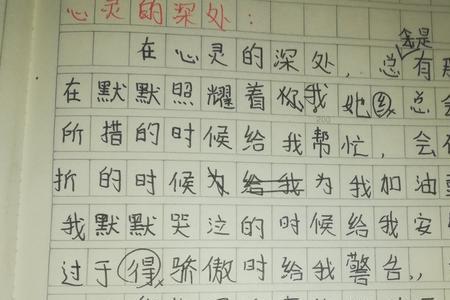 心灵的深处：
在心灵的深处，总有
在默默照耀着你我她总会
所措的时候给我帮忙，会
折的时候为给我为我加油
我默默哭泣的时候给我安
过于得骄傲时给我警告，